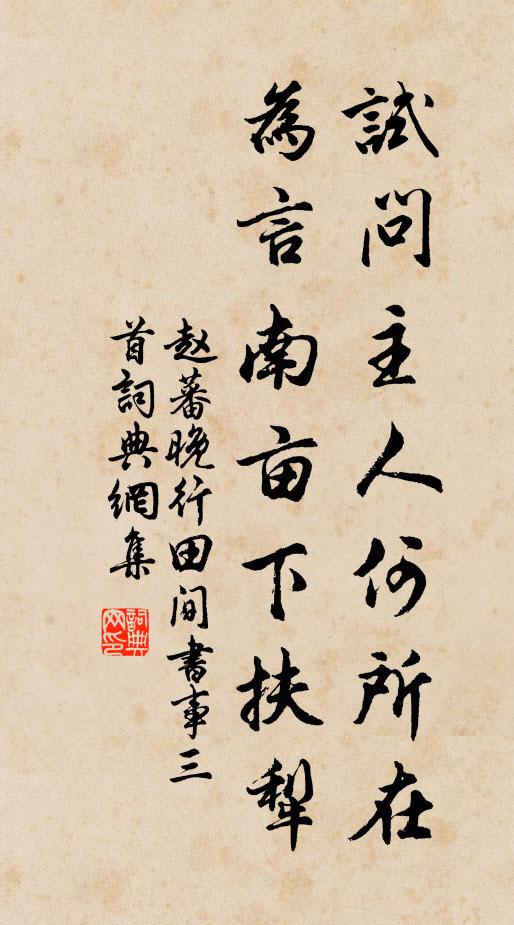 試問主人何所在
為言南亩下扶犁
赵蕃晚行田间書事三
首詞典網集
詞典网印